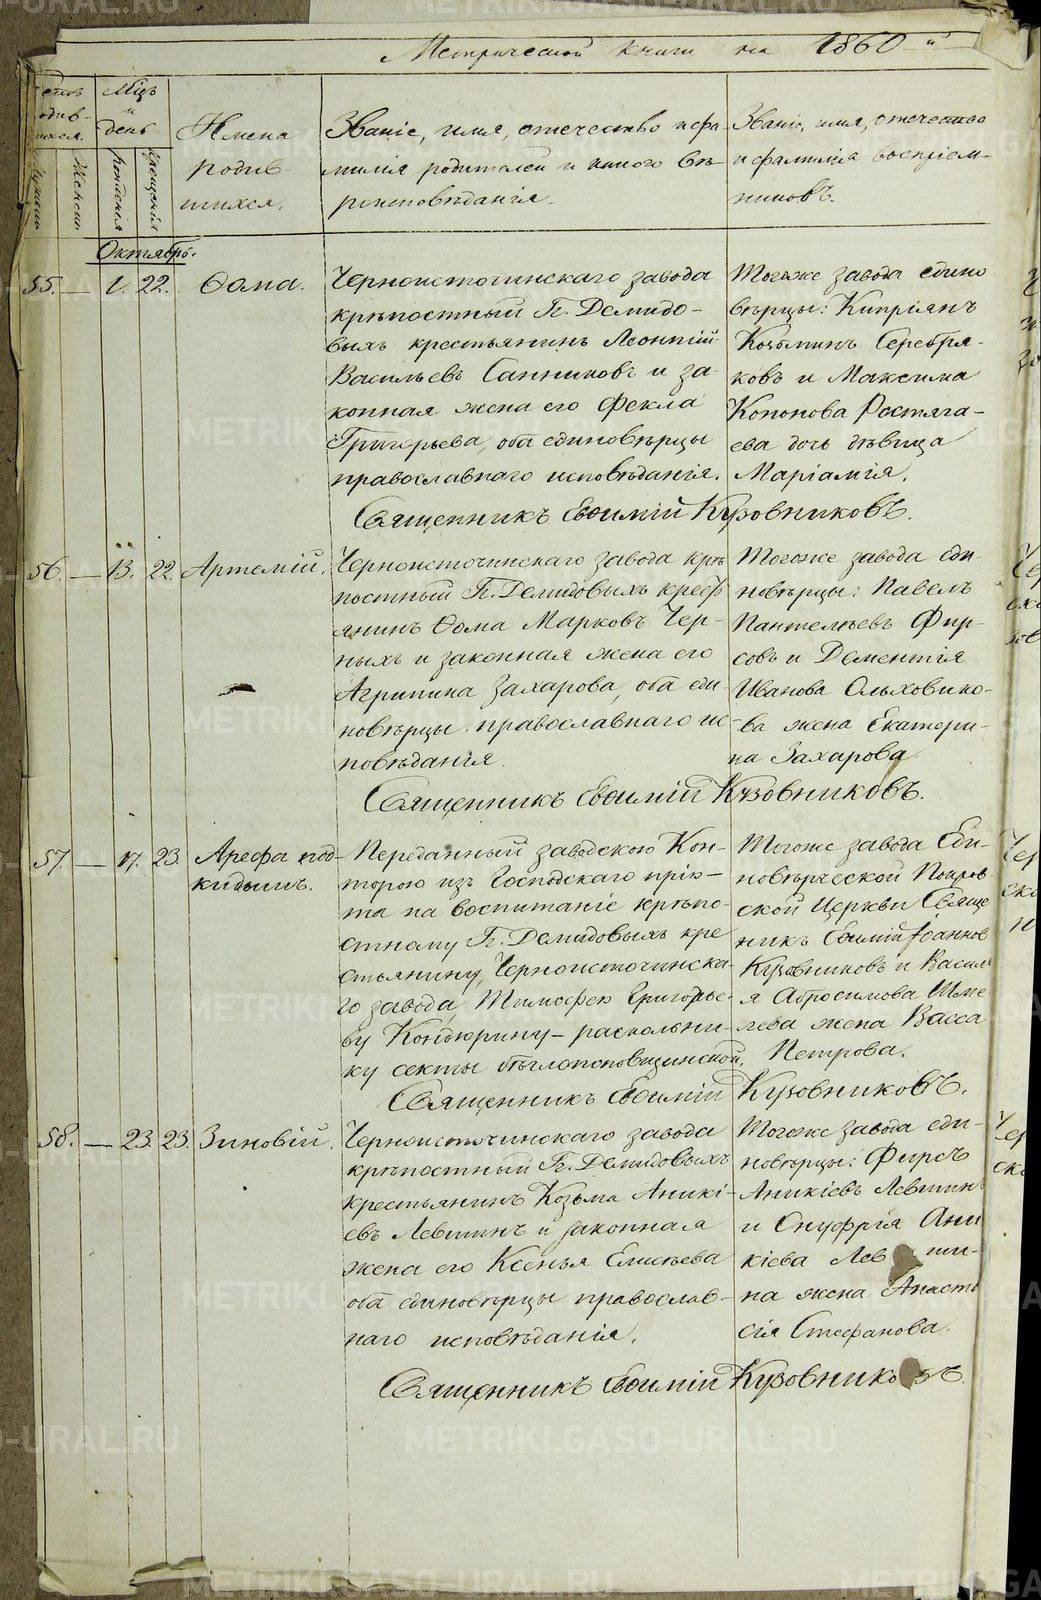 Метрической книги на 1860 й
Мцъ
и
день
рожденія
крещенія
Имена
родив-
шихся.
Званіе, имя, отечество и фа-
милія родителей и какого вѣ-
роисповѣданія.
Званіе, имя, отечество
и фамилія воспріем-
никовъ.
Октябрь.
55. — 1. 22. Ѳома.
Черноисточинскаго завода
крѣпостный Гг. Демидо-
выхъ крестьянинъ Леонтій
Васильевъ Санниковъ и за-
конная жена его Фекла
Григорьева, оба единовѣрцы
православнаго исповѣданія.
Тогоже завода едино
вѣрцы: Кипріянъ
Козьминъ Серебря-
ковъ и Максима
Кононова Растяга-
ева дочь дѣвица
Маріамія.
Священникъ Евѳимій Кузовниковъ.
56. — 13. 22. Артемій.
Черноисточинскаго завода крѣ
постный Гг. Демидовыхъ крест
янинъ Ѳома Марковъ Чер-
ныхъ и законная жена его
Агрипина Захарова, оба еди-
новѣрцы православнаго ис-
повѣданія.
Тогоже завода еди-
новѣрцы: Павелъ
Пантелѣевъ Фир-
совъ и Дементія
Иванова Ольховико-
ва жена Екатери-
на Захарова
Священникъ Евѳимій Кузовниковъ.
57. — 17. 23. Арефа под-
кидышъ.
Переданный заводскою Кон-
торою изъ Господскаго прію-
та на воспитаніе крѣпо-
стному Гг. Демидовыхъ кре
стьянину, Черноисточинска-
го завода, Тимофею Григорье-
ву Кондюрину — раскольни-
ку секты бѣглопоповщинской.
Тогоже завода Еди-
новѣрческой Покров
ской Церкви Свяще
никъ Евѳимій Іоаннов
Кузовниковъ и Васил
я Абросимова Шме
лева жена Васса
Петрова.
Священникъ Евѳимій Кузовниковъ.
58. — 23. 23. Зиновій.
Черноисточинскаго завода
крѣпостный Гг. Демидовыхъ
крестьянинъ Козьма Аникі-
евъ Левшинъ и законная
жена его Ксенья Елисѣева
оба единовѣрцы православ-
наго исповѣданія.
Тогоже завода еди-
новѣрцы: Фирсъ
Аникіевъ Левшинъ
и Онуфрія Ани
кіева Лев ши-
на жена Анаста
сія Стефанова.
Священникъ Евѳимій Кузовниковъ.
METRIKI.GASO-URAL.RU